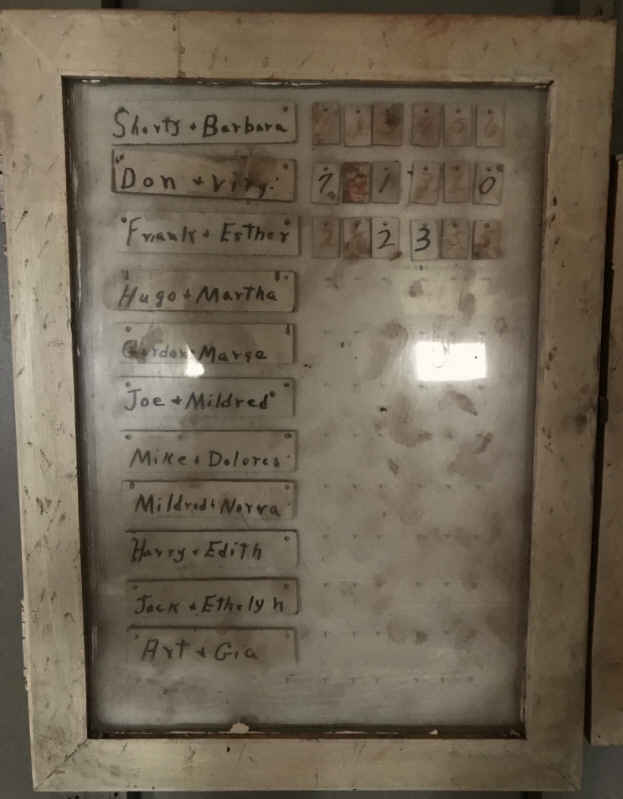 Shorty + Barbara
Don + Virg. 7 1 0
Frank + Esther 2 3
Hugo + Martha
Gordon Marge
Joe + Mildred
Mike + Dolores
Mildred + Norva
Harry + Edith
Jack + Ethelyn
Art + Gia